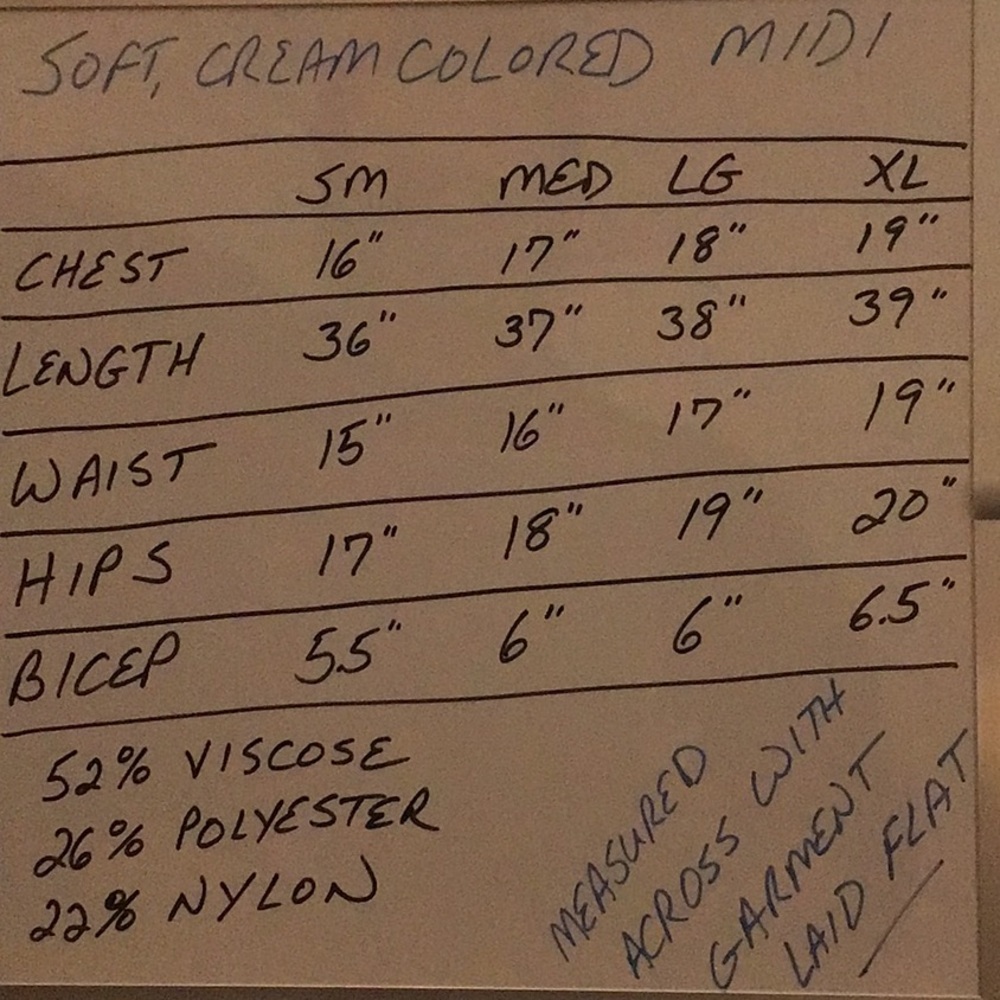 SOFT, CREAM COLORED MIDI
SM MED LG XL
CHEST 16" 17" 18" 19"
LENGTH 36" 37" 38" 39"
WAIST 15" 16" 17" 19"
HIPS 17" 18" 19" 20"
BICEP 5.5" 6" 6" 6.5"
52% VISCOSE
26% POLYESTER
22% NYLON
MEASURED
ACROSS WITH
GARMENT
LAID FLAT